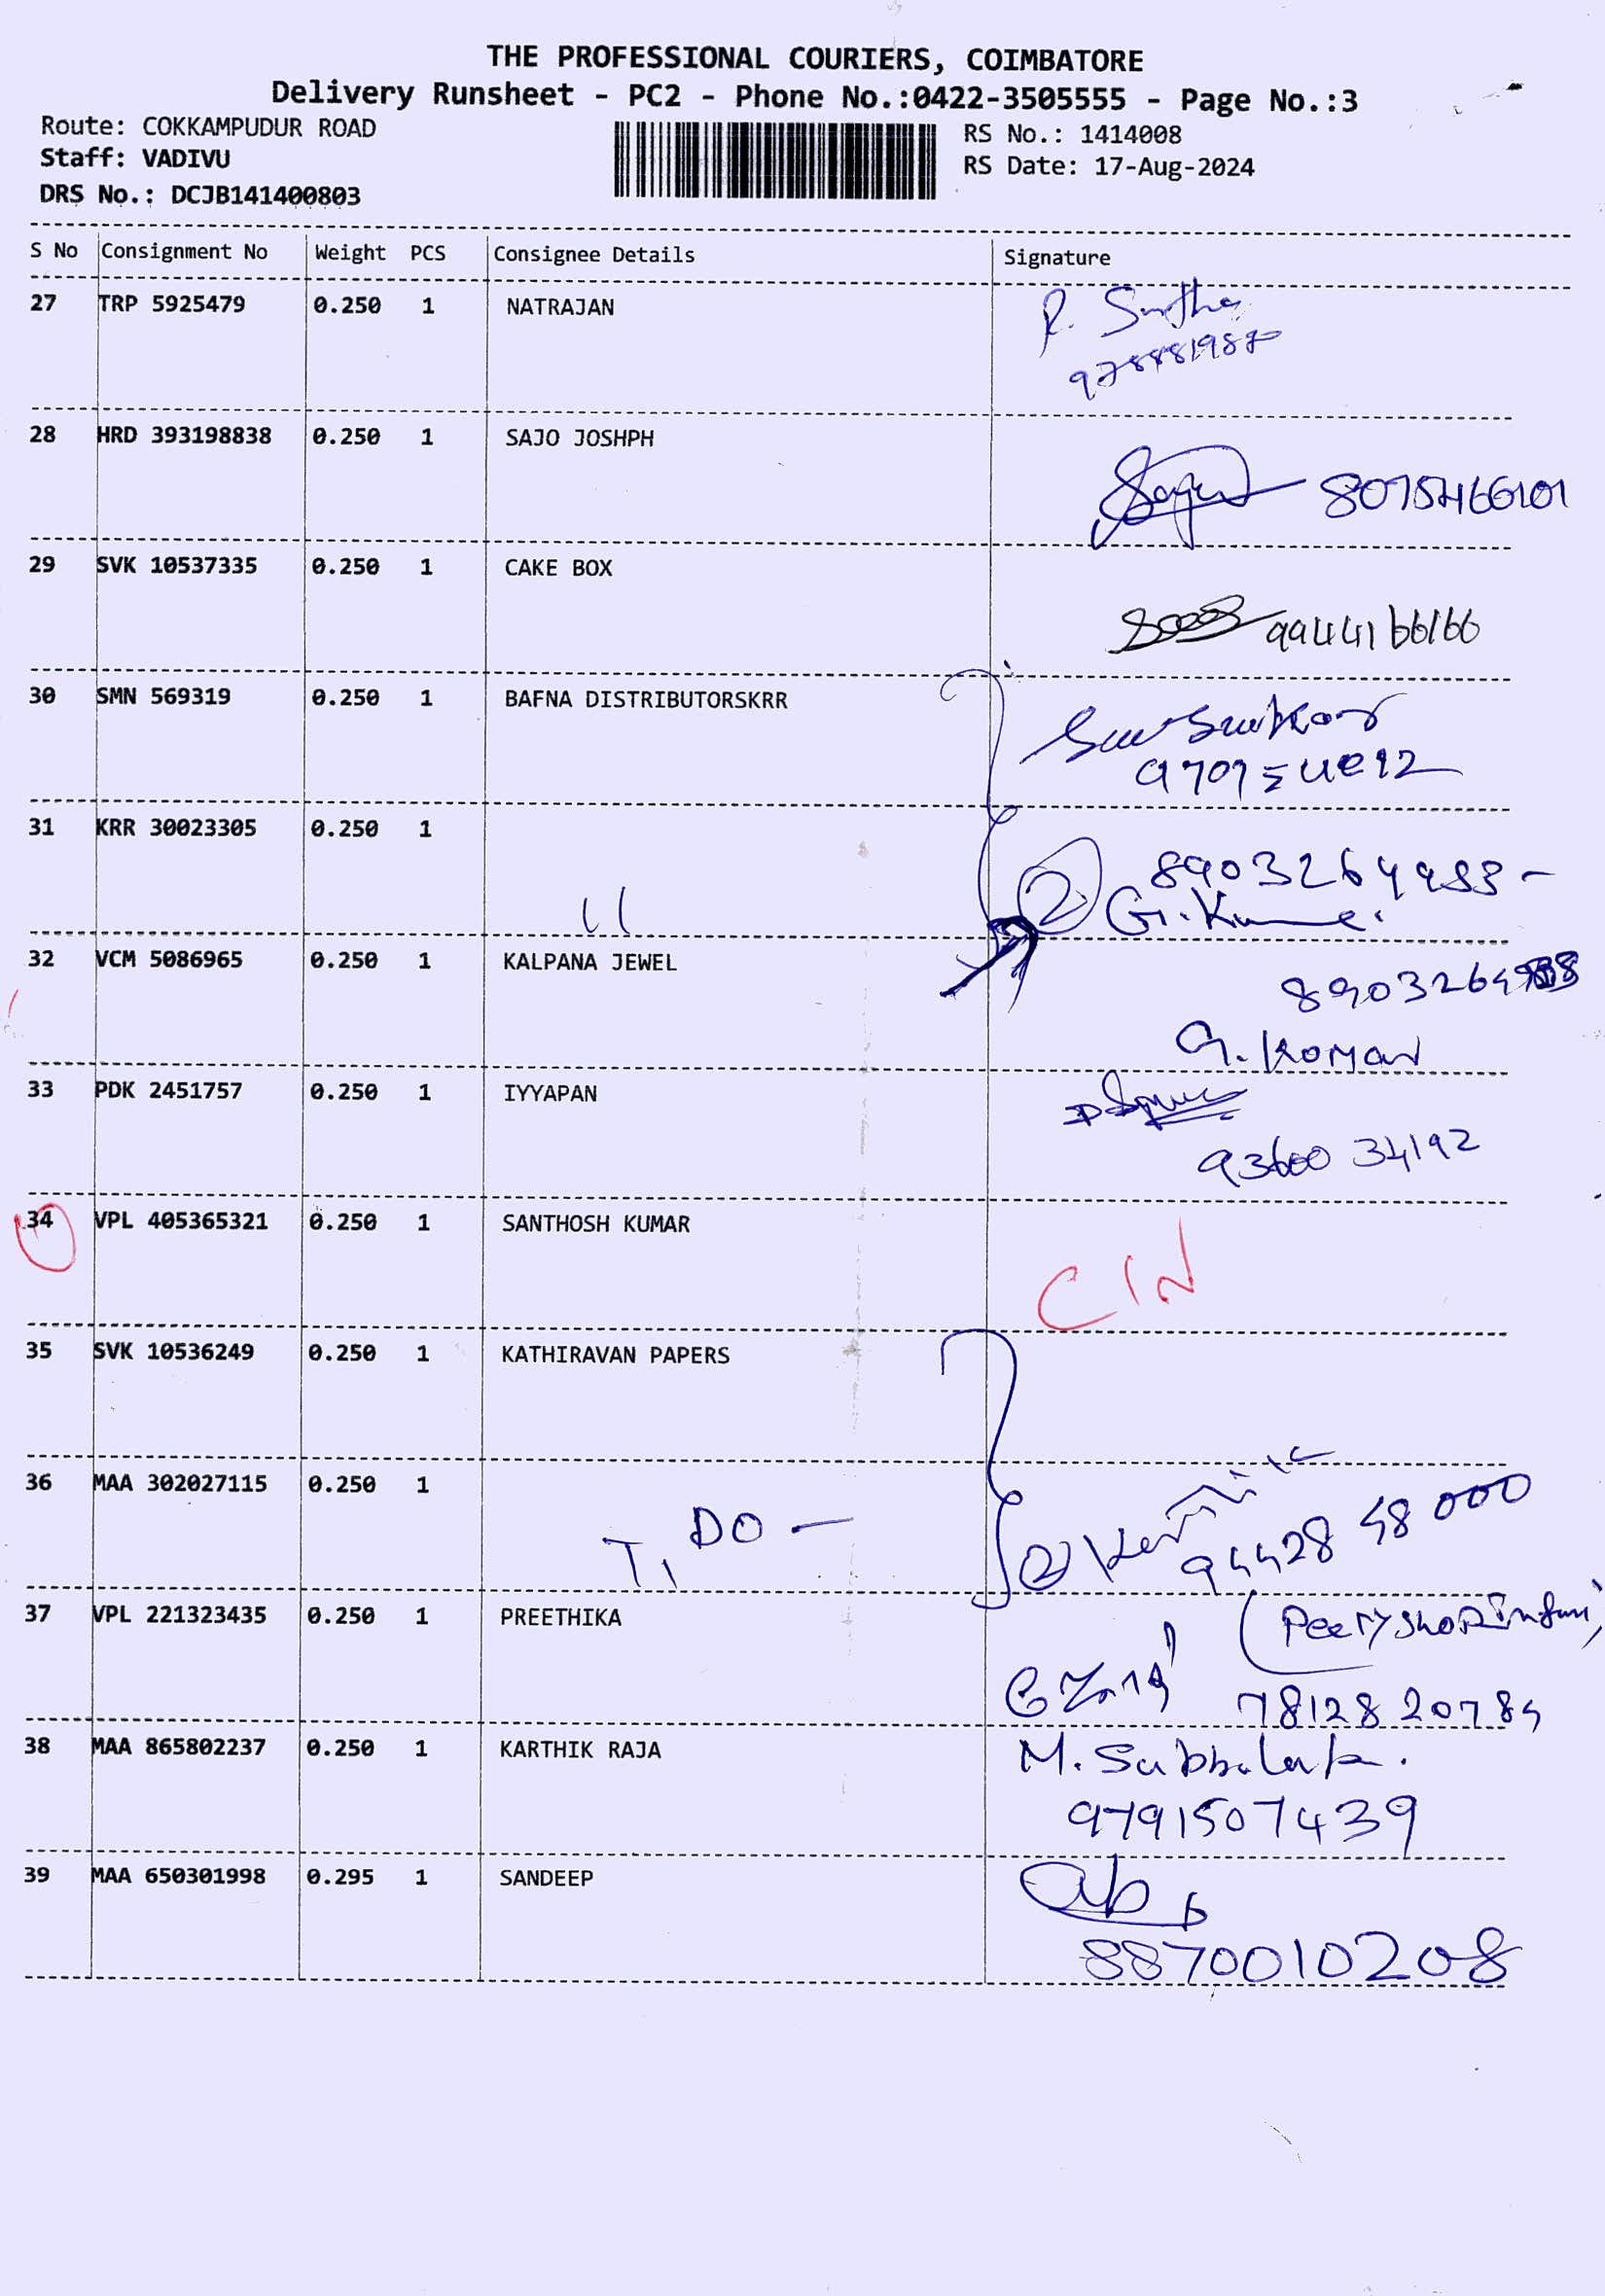 THE PROFESSIONAL COURIERS, COIMBATORE
Delivery Runsheet - PC2 - Phone No.:0422-3505555 - Page No.:3
Route: COKKAMPUDUR ROAD
RS No.: 1414008
Staff: VADIVU
RS Date: 17-Aug-2024
DRS No.: DCJB141400803
S No Consignment No Weight PCS Consignee Details Signature
27 TRP 5925479 0.250 1 NATRAJAN
R.
28 HRD 393198838 0.250 1 SAJO JOSHPH
29 SVK 10537335 0.250 1 CAKE BOX
9944166166
30 SMN 569319 0.250 1 BAFNA DISTRIBUTORSKRR
31 KRR 30023305 0.250 1
2 G. Kumar
32 VCM 5086965 0.250 1 KALPANA JEWEL
33 PDK 2451757 0.250 1 IYYAPAN
93600 34192
34 VPL 405365321 0.250 1 SANTHOSH KUMAR
CIN
35 SVK 10536249 0.250 1 KATHIRAVAN PAPERS
36 MAA 302027115 0.250 1
DO —
2
94428 48000
37 VPL 221323435 0.250 1 PREETHIKA
78128 20784
38 MAA 865802237 0.250 1 KARTHIK RAJA
M.
9791507439
39 MAA 650301998 0.295 1 SANDEEP
8870010208